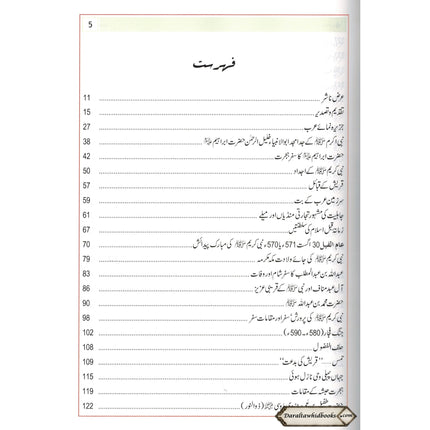 5
فہرست
عرض ناشر 11
تقدیم و تصدیر 15
جزیرہ نمائے عرب 27
نبی اکرم ﷺ کے جد امجد ابو الانبیاء خلیل الرحمٰن حضرت ابراہیم 38
حضرت ابراہیم کا سفر ہجرت 42
نبی کریم ﷺ کے اجداد 50
قریش کے قبائل 57
سرزمین عرب کے بت 59
جاہلیت کی مشہور تجارتی منڈیاں اور میلے 61
زمانۂ قبل اسلام کی سلطنتیں 67
عام الفیل 30 اگست 571ء یا 570ء، نبی کریم ﷺ کی مبارک پیدائش 70
نبی کریم ﷺ کی جائے ولادت مکہ مکرمہ 79
عبداللہ بن عبدالمطلب کا سفر شام اور وفات 83
آل عبد مناف اور نبی ﷺ کے قریبی عزیز 86
حضرت محمد بن عبداللہ ﷺ 90
نبی کریم ﷺ کی پرورش، سفر اور مقامات سفر 98
جنگ فجار (580ء ۔ 590ء) 102
حلف الفضول 108
حمس ..... "قریش کی بدعت" 109
جہاں پہلی وحی نازل ہوئی 115
ہجرت حبشہ کے مقامات 119
(ذوالنور) 122
Daraltawhidbooks.com